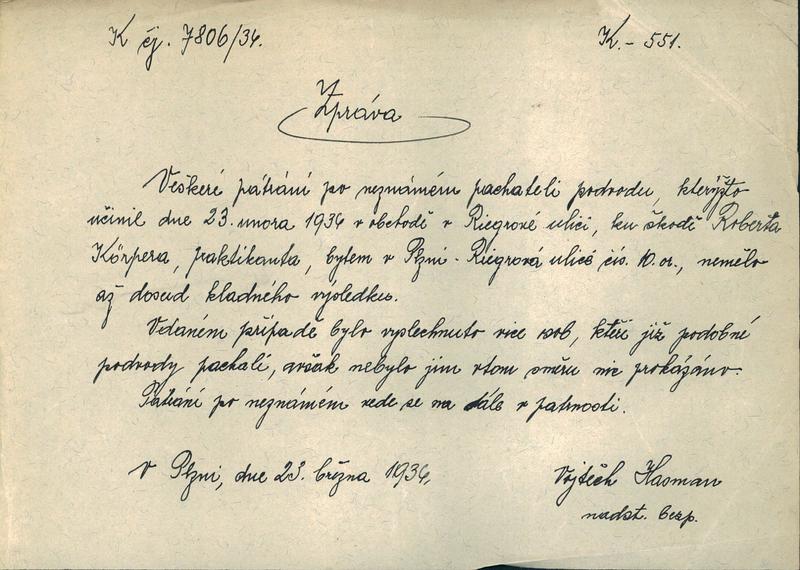 K čj. 7806/34.
K.- 551.
Zpráva
Veškeré pátrání po neznámém pachateli podvodu, kterýžto
učinil dne 23. února 1934 v obchodě v Riegrové ulici, ku škodě Roberta
Körpera, praktikanta, bytem v Plzni - Riegrová ulice čís. 10. or., nemělo
až dosud kladného výsledku.
Vdaném případě bylo vyslechnuto více osob, kteří již podobné
podvody pachali, avšak nebylo jim vtom směru nic prokázáno.
Pátrání po neznámém vede se na dále v patrnosti.
V Plzni, dne 23. března 1934.
Vojtěch Hasman
nadst. bezp.